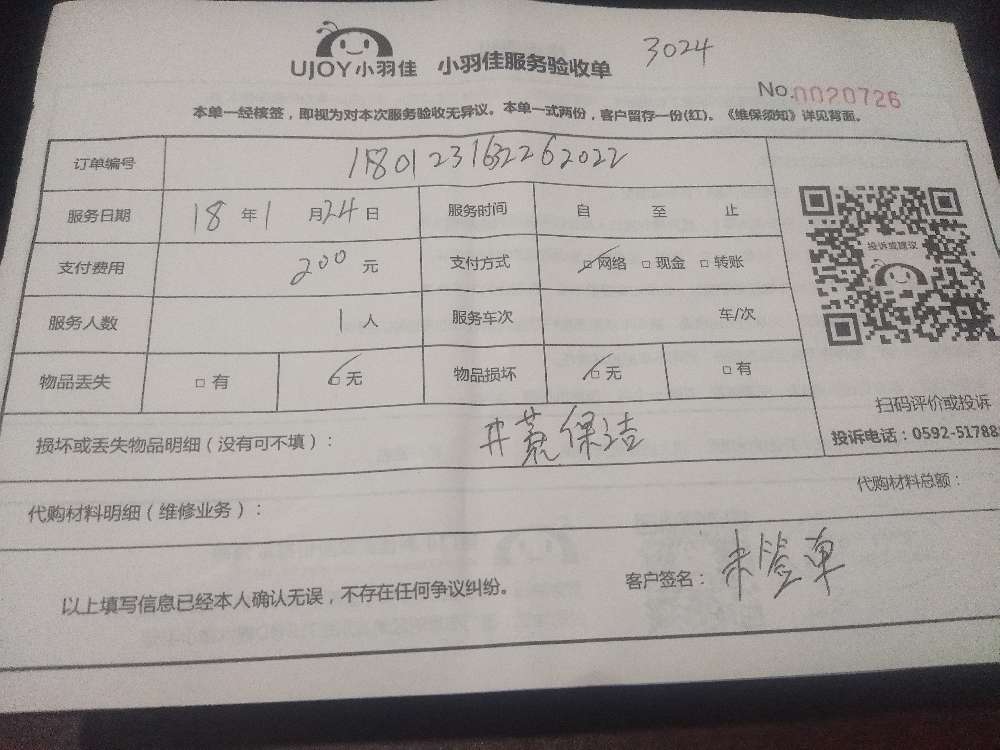 3024
UJOY小羽佳 小羽佳服务验收单
No.0020726
本单一经核签，即视为对本次服务验收无异议。本单一式两份，客户留存一份(红)。《维保须知》详见背面。
订单编号 118012316322622022
服务日期 18 年 1 月 24 日 服务时间 自 至 止
支付费用 200 元 支付方式 □网络 □现金 □转账
投诉或建议
服务人数 1 人 服务车次 车/次
物品丢失 □有 □无 物品损坏 □无 □有
扫码评价或投诉
投诉电话：0592-51788
损坏或丢失物品明细（没有可不填）： 保洁
代购材料明细（维修业务）： 代购材料总额：
以上填写信息已经本人确认无误，不存在任何争议纠纷。 客户签名： 未签单